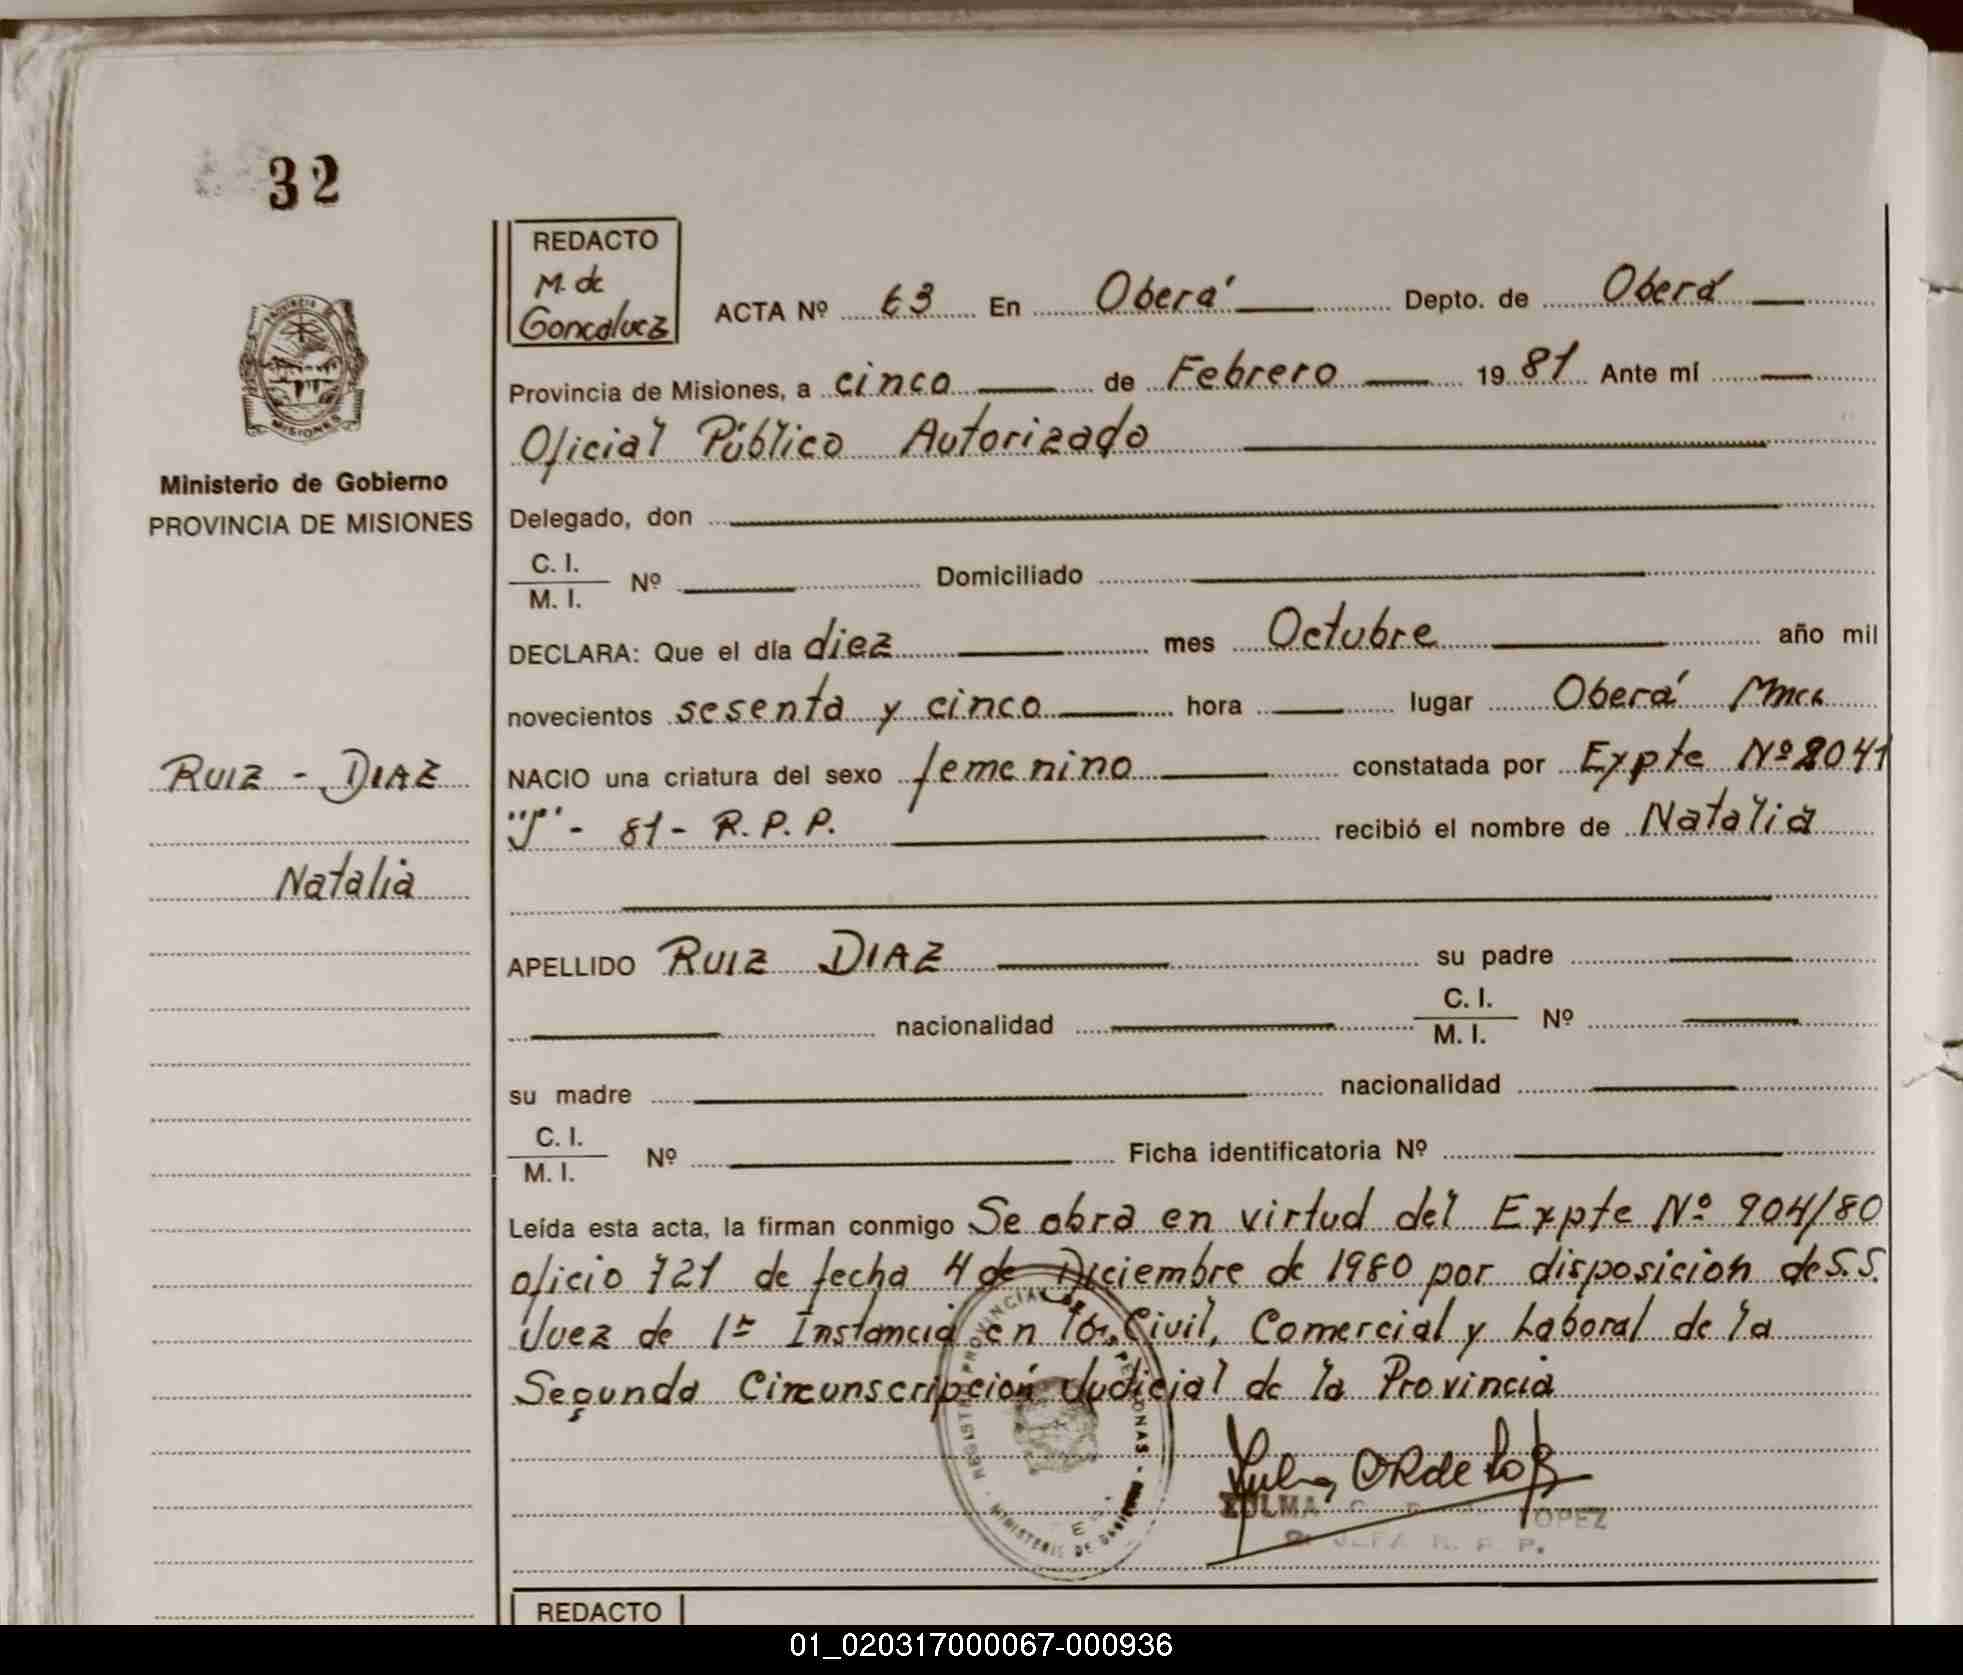 32
REDACTO
M. de
Goncalvez
ACTA Nº 63 En Oberá Depto. de Oberá
Provincia de Misiones, a cinco de Febrero 1981 Ante mí
Oficial Público Autorizado
Ministerio de Gobierno
PROVINCIA DE MISIONES
Delegado, don
C. I.
M. I. Nº Domiciliado
DECLARA: Que el día diez mes Octubre año mil
novecientos sesenta y cinco hora lugar Oberá Mnes
RUIZ - DIAZ
NACIO una criatura del sexo femenino constatada por Expte Nº 2041
"J" - 81 - R. P. P. recibió el nombre de Natalia
Natalia
APELLIDO RUIZ DIAZ su padre
nacionalidad C. I.
M. I. Nº
su madre nacionalidad
C. I.
M. I. Nº Ficha identificatoria Nº
Leída esta acta, la firman conmigo Se obra en virtud del Expte Nº 904/80
oficio 721 de fecha 4 de Diciembre de 1980 por disposicion de S.S.
Juez de 1ra Instancia en lo Civil, Comercial y Laboral de la
Segunda Circunscripción Judicial de la Provincia
REGISTRO PROVINCIAL DE PERSONAS - MINISTERIO DE GOBIERNO
ZULMA LOPEZ
JEFA R. P. P.
REDACTO
01_020317000067-000936